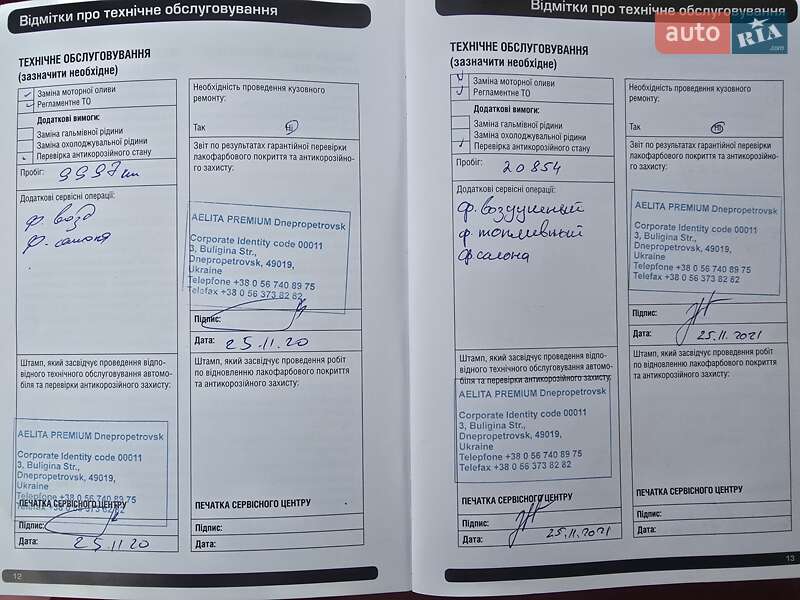 Відмітки про технічне обслуговування
ТЕХНІЧНЕ ОБСЛУГОВУВАННЯ
(зазначити необхідне)
Заміна моторної оливи
Регламентне ТО
Додаткові вимоги:
Заміна гальмівної рідини
Заміна охолоджувальної рідини
Перевірка антикорозійного стану
Пробіг: 9997 км
Додаткові сервісні операції:
ф. возд
ф. салона
Штамп, який засвідчує проведення відпо-
відного технічного обслуговування автомо-
біля та перевірки антикорозійного захисту:
AELITA PREMIUM Dnepropetrovsk
Corporate Identity code 00011
3, Buligina Str.,
Dnepropetrovsk, 49019,
Ukraine
Telepfone +38 0 56 740 89 75
Telefax +38 0 56 373 82 82
ПЕЧАТКА СЕРВІСНОГО ЦЕНТРУ
Підпис:
Дата: 25.11.20
12
Необхідність проведення кузовного
ремонту:
Так Ні
Звіт по результатах гарантійної перевірки
лакофарбового покриття та антикорозійно-
го захисту:
AELITA PREMIUM Dnepropetrovsk
Corporate Identity code 00011
3, Buligina Str.,
Dnepropetrovsk, 49019,
Ukraine
Telepfone +38 0 56 740 89 75
Telefax +38 0 56 373 82 82
Підпис:
Дата: 25.11.20
Штамп, який засвідчує проведення робіт
по відновленню лакофарбового покриття
та антикорозійного захисту:
ПЕЧАТКА СЕРВІСНОГО ЦЕНТРУ
Підпис:
Дата:
Відмітки про технічне обслуговування
auto RIA .com
ТЕХНІЧНЕ ОБСЛУГОВУВАННЯ
(зазначити необхідне)
Заміна моторної оливи
Регламентне ТО
Додаткові вимоги:
Заміна гальмівної рідини
Заміна охолоджувальної рідини
Перевірка антикорозійного стану
Пробіг: 20854
Додаткові сервісні операції:
ф. воздушный
ф. топливный
ф салона
Штамп, який засвідчує проведення відпо-
відного технічного обслуговування автомо-
біля та перевірки антикорозійного захисту:
AELITA PREMIUM Dnepropetrovsk
Corporate Identity code 00011
3, Buligina Str.,
Dnepropetrovsk, 49019,
Ukraine
Telepfone +38 0 56 740 89 75
Telefax +38 0 56 373 82 82
ПЕЧАТКА СЕРВІСНОГО ЦЕНТРУ
Підпис:
Дата: 25.11.2021
Необхідність проведення кузовного
ремонту:
Так Ні
Звіт по результатах гарантійної перевірки
лакофарбового покриття та антикорозійно-
го захисту:
AELITA PREMIUM Dnepropetrovsk
Corporate Identity code 00011
3, Buligina Str.,
Dnepropetrovsk, 49019,
Ukraine
Telepfone +38 0 56 740 89 75
Telefax +38 0 56 373 82 82
Підпис:
Дата: 25.11.2021
Штамп, який засвідчує проведення робіт
по відновленню лакофарбового покриття
та антикорозійного захисту:
ПЕЧАТКА СЕРВІСНОГО ЦЕНТРУ
Підпис:
Дата:
13